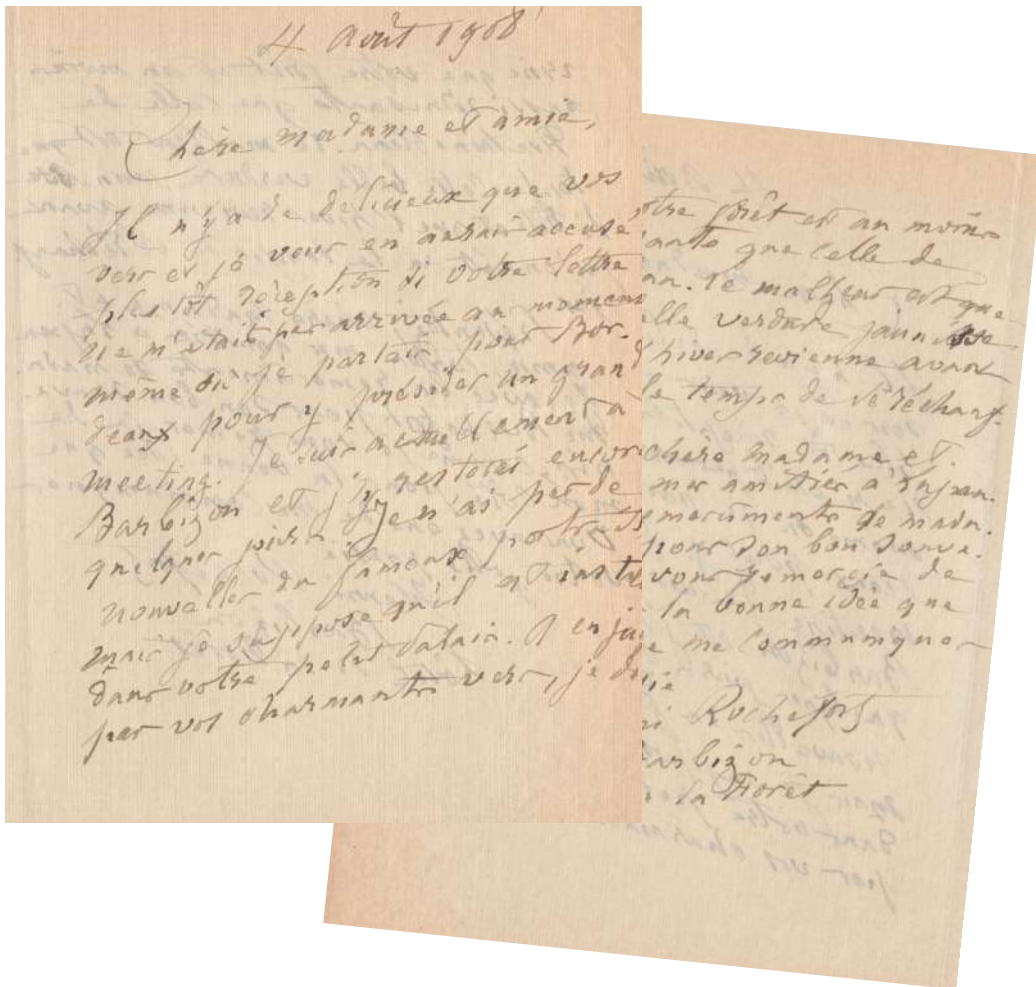 4 Août 1908
Chère madame et amie,
Il n'y a de délicieux que vos
vers et je vous en aurais accusé
plus tôt réception si votre lettre
ne m'était pas arrivée au moment
même où je partais pour Bor-
deaux pour y présider un grand
meeting. Je suis actuellement à
Barbizon et j'y resterai encore
quelques jours. Je n'ai pas de
nouvelles du fameux
mais je suppose qu'il est
dans votre petit Palais. A en
par vos charmants vers, je
forêt est au moins
que celle de
Le malheur est que
verdure
hiver revienne avant
le temps de
chère madame et
mes amitiés à
de mada-
pour son bon souve-
vous remercie de
la bonne idée que
me communiquer
Rochefort
Barbizon
la Forêt